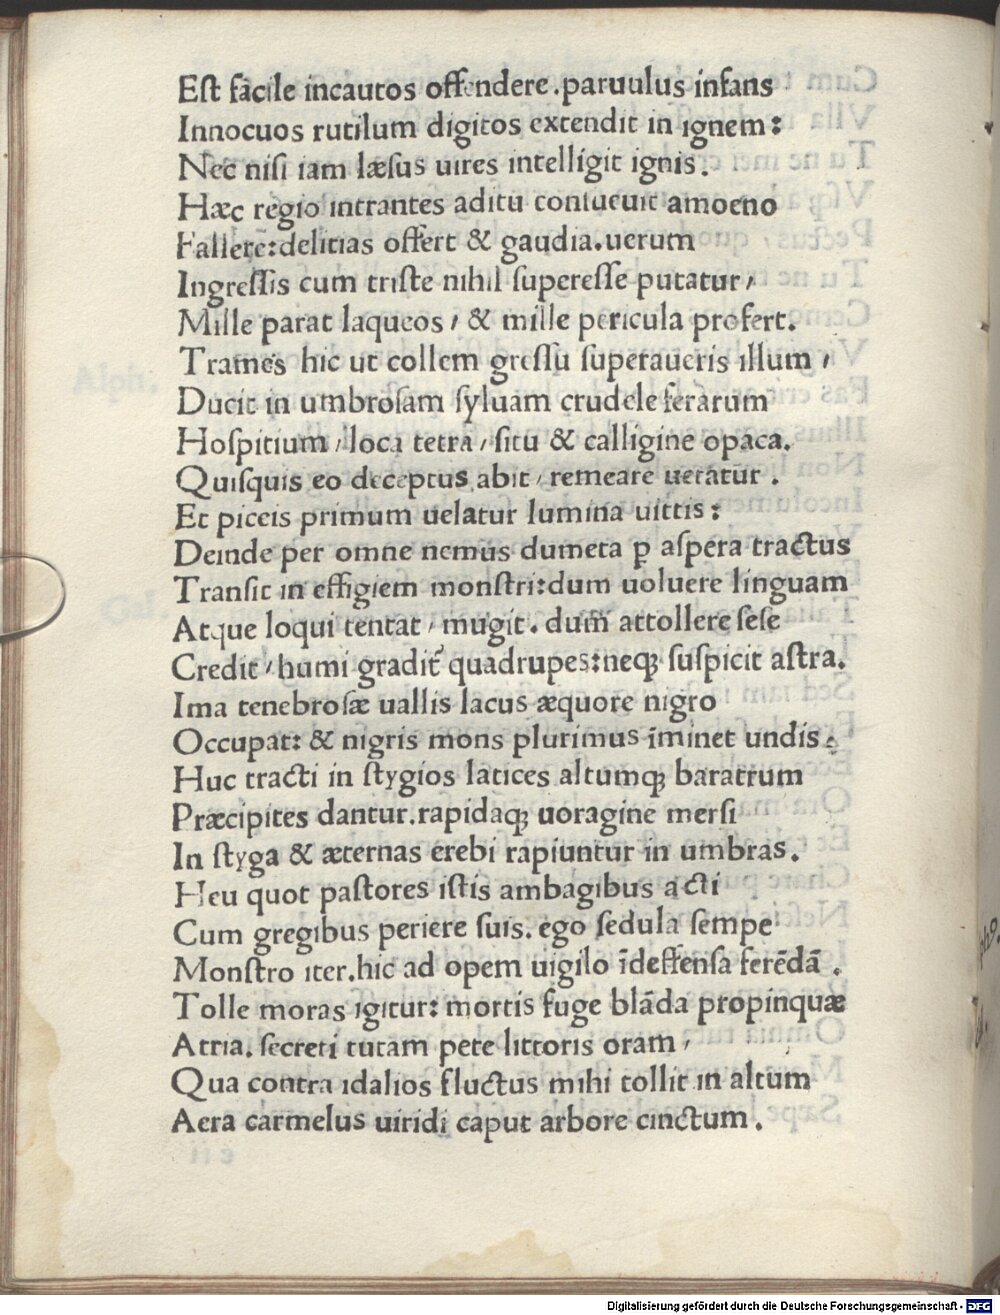 Eſt facile incautos offendere.paruulus infans
Innocuos rutilum digitos extendit in ignem:
Nec niſi iam læſus uires intelligit ignis.
Hæc regio intrantes aditu conſueuit amoeno
Fallere:delitias offert & gaudia.uerum
Ingreſſis cum triſte nihil ſupereſſe putatur/
Mille parat laqueos/ & mille pericula profert.
Trames hic ut collem greſſu ſuperaueris illum/
Ducit in umbroſam ſyluam crudele ferarum
Hoſpitium/loca tetra/ſitu & calligine opaca.
Quiſquis eo deceptus abit/remeare uetatur.
Et piceis primum uelatur lumina uittis:
Deinde per omne nemus dumeta ꝑ aſpera tractus
Tranſit in effigiem monſtri:dum uoluere linguam
Atque loqui tentat/mugit. dum attollere ſeſe
Credit/humi gradit᷑ quadrupes:neqꝫ ſuſpicit aſtra.
Ima tenebroſæ uallis lacus æquore nigro
Occupat: & nigris mons plurimus īminet undis.
Huc tracti in ſtygios latices altumqꝫ baratrum
Præcipites dantur.rapidaqꝫ uoragine merſi
In ſtyga & æternas erebi rapiuntur in umbras.
Heu quot paſtores iſtis ambagibus acti
Cum gregibus periere ſuis. ego ſedula ſempe
Monſtro iter.hic ad opem uigilo īdeffenſa ferēdā.
Tolle moras igitur: mortis fuge blāda propinquæ
Atria. ſecreti tutam pete littoris oram/
Qua contra idalios fluctus mihi tollit in altum
Aera carmelus uiridi caput arbore cinctum.
Digitalisierung gefördert durch die Deutsche Forschungsgemeinschaft - DFG